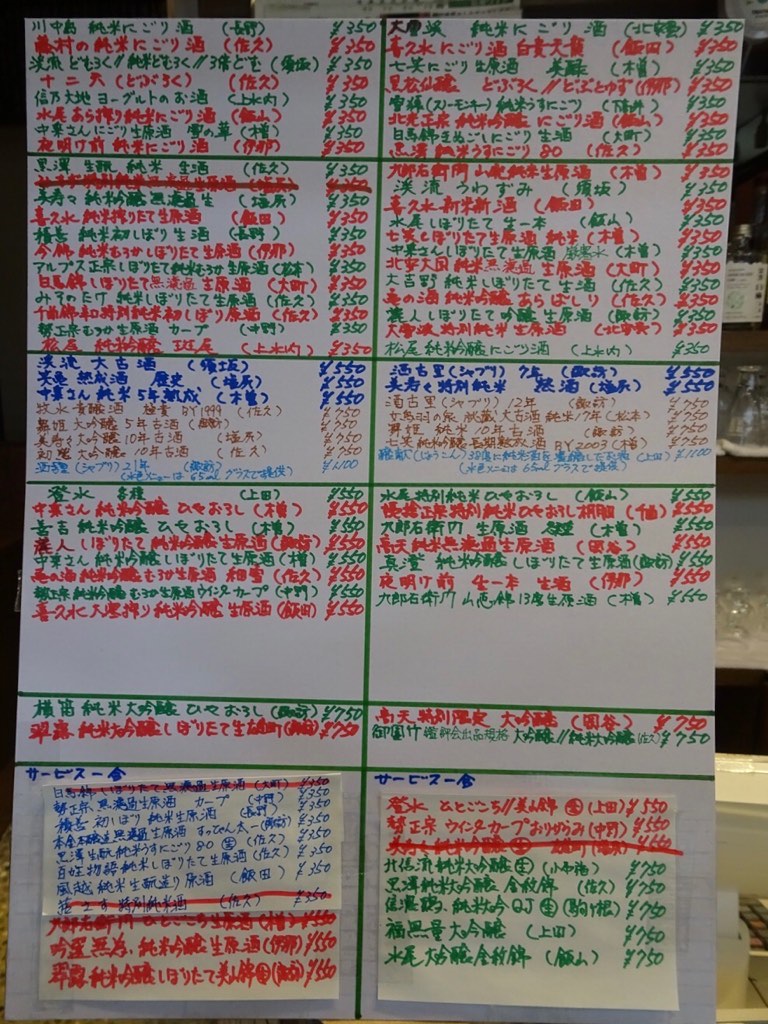 川中島 純米にごり酒 (長野) ¥350
藤村の純米にごり酒 (佐久) ¥350
渓流 どむろく//純米どむろく//3倍どむ (須坂) ¥350
十二天 (どぶろく) (佐久) ¥350
信乃大地 ヨーグルトのお酒 (上水内) ¥350
水尾 あら搾り純米にごり酒 (飯山) ¥350
中乗さんにごり生原酒 雪の華 (木曽) ¥350
夜明け前 純米にごり酒 (伊那) ¥350
黒澤 生酛 純米 生酒 (佐久) ¥350
特別純米 生原酒 ¥350
美寿々 純米吟醸 無濾過生 (塩尻) ¥350
喜久水 純米搾りたて生原酒 (飯田) ¥350
積善 純米初しぼり 生酒 (長野) ¥350
今錦 純米むろか しぼりたて生原酒 (伊那) ¥350
アルプス正宗 しぼりたて純米むろか 生原酒 (松本) ¥350
白馬錦 しぼりたて無濾過 生原酒 (大町) ¥350
みそのたけ 純米しぼりたて生原酒 (佐久) ¥350
千曲錦 特別純米初しぼり 原酒 (佐久) ¥350
勢正宗 むろか生原酒 カープ (中野) ¥350
松尾 純米吟醸 斑尾 (上水内) ¥350
渓流 大古酒 (須坂) ¥550
笑亀 熟成酒 歴史 (塩尻) ¥550
中乗さん 純米 5年熟成 (木曽) ¥550
牧水 貴醸酒 極貴 BY1999 (佐久) ¥750
舞姫 大吟醸 5年古酒 (諏訪) ¥750
美寿々 大吟醸 10年古酒 (塩尻) ¥750
初鶯 大吟醸 10年古酒 (佐久) ¥750
酒古里 (シャブリ) 21年 (諏訪) ¥1100
(水色メニューは65mlグラスで提供)
登水 各種 (上田) ¥550
中乗さん 純米吟醸 ひやおろし (木曽) ¥550
善吉 純米吟醸 ひやおろし (木曽) ¥550
麗人 しぼりたて 純米吟醸 生原酒 (諏訪) ¥550
中乗さん 純米吟醸 しぼりたて生原酒 (木曽) ¥550
亀の海 純米吟醸 むろか生原酒 細雪 (佐久) ¥550
勢正宗 純米吟醸 むろか生原酒ウインターカープ (中野) ¥550
喜久水 大雫搾り 純米吟醸 生原酒 (飯田) ¥550
横笛 純米大吟醸 ひやおろし (諏訪) ¥750
翠露 純米大吟醸 しぼりたて生 雄町 (諏訪) ¥750
サービス一合
白馬錦 しぼりたて 無濾過生原酒 (大町) ¥350
勢正宗 無濾過生原酒 カープ (中野) ¥350
積善 初しぼり 純米生原酒 (長野) ¥350
本金 本醸造 無濾過生原酒 すっぴん太一 (諏訪) ¥350
黒澤 生酛 純米うすにごり 80 生 (佐久) ¥350
百姓物語 純米しぼりたて生原酒 (佐久) ¥350
風越 純米 生酛造り 原酒 (飯田) ¥350
特別純米酒 (佐久) ¥350
九郎右衛門 ひとごこち 生原酒 (木曽) ¥550
吟澤 無為 純米吟醸 生原酒 (伊那) ¥550
翠露 純米吟醸 しぼりたて 美山錦 生 (諏訪) ¥550
大雪渓 純米にごり酒 (北安曇) ¥350
喜久水 にごり酒 白貴天貴 (飯田) ¥350
七笑 にごり生原酒 美醸 (木曽) ¥350
黒松仙醸 どぶろく//どぶとゆず (伊那) ¥350
雪輝 (スノーモンキー) 純米うすにごり (下高井) ¥350
北光正宗 純米吟醸 にごり酒 (飯山) ¥350
白馬錦 きぬごしにごり 生酒 (大町) ¥350
黒澤 純米うすにごり 80 (佐久) ¥350
九郎右衛門 山廃純米生原酒 (木曽) ¥350
渓流 うわずみ (須坂) ¥350
喜久水 新米新酒 (飯田) ¥350
水尾 しぼりたて 生一本 (飯山) ¥350
七笑 しぼりたて生原酒 純米 (木曽) ¥350
中乗さん しぼりたて生原酒 (木曽) ¥350
北安大国 純米無濾過 生原酒 (大町) ¥350
大吉野 純米しぼりたて 生酒 (佐久) ¥350
亀の海 純米吟醸 あらばしり (佐久) ¥350
麗人 しぼりたて 吟醸 生原酒 (諏訪) ¥350
大雪渓 特別純米 生原酒 (北安曇) ¥350
松尾 純米吟醸にごり酒 (上水内) ¥350
酒古里 (シャブリ) 7年 (諏訪) ¥550
美寿々 特別純米 熟酒 (塩尻) ¥550
酒古里 (シャブリ) 12年 (諏訪) ¥750
女鳥羽の泉 秘蔵大古酒 純米17年 (松本) ¥750
舞姫 純米 10年古酒 (諏訪) ¥750
七笑 純米吟醸 長期熟成酒 BY2003 (木曽) ¥750
(上田) ¥1100
(水色メニューは65mlグラスで提供)
水尾 特別純米 ひやおろし (飯山) ¥550
姨捨正宗 特別純米 ひやおろし 棚田 (千曲) ¥550
九郎右衛門 生原酒 各種 (木曽) ¥550
高天 純米無濾過生原酒 (岡谷) ¥550
真澄 純米吟醸 しぼりたて生原酒 (諏訪) ¥550
夜明け前 生一本 生酒 (伊那) ¥550
九郎右衛門 山恵錦 13度生原酒 (木曽) ¥550
高天 特別限定 大吟醸 (岡谷) ¥750
御園竹 鑑評会出品規格 大吟醸//純米大吟醸 (佐久) ¥750
サービス一合
登水 ひとごこち//美山錦 生 (上田) ¥550
勢正宗 ウインターカープおりがらみ (中野) ¥550
美寿々 純米吟醸 生 ¥550
北信流 純米大吟醸 生 (小布施) ¥750
黒澤 純米大吟醸 金紋錦 (佐久) ¥750
信濃鶴 純米大吟 QJ 生 (駒ヶ根) ¥750
福無量 大吟醸 (上田) ¥750
水尾 大吟醸 金紋錦 (飯山) ¥750